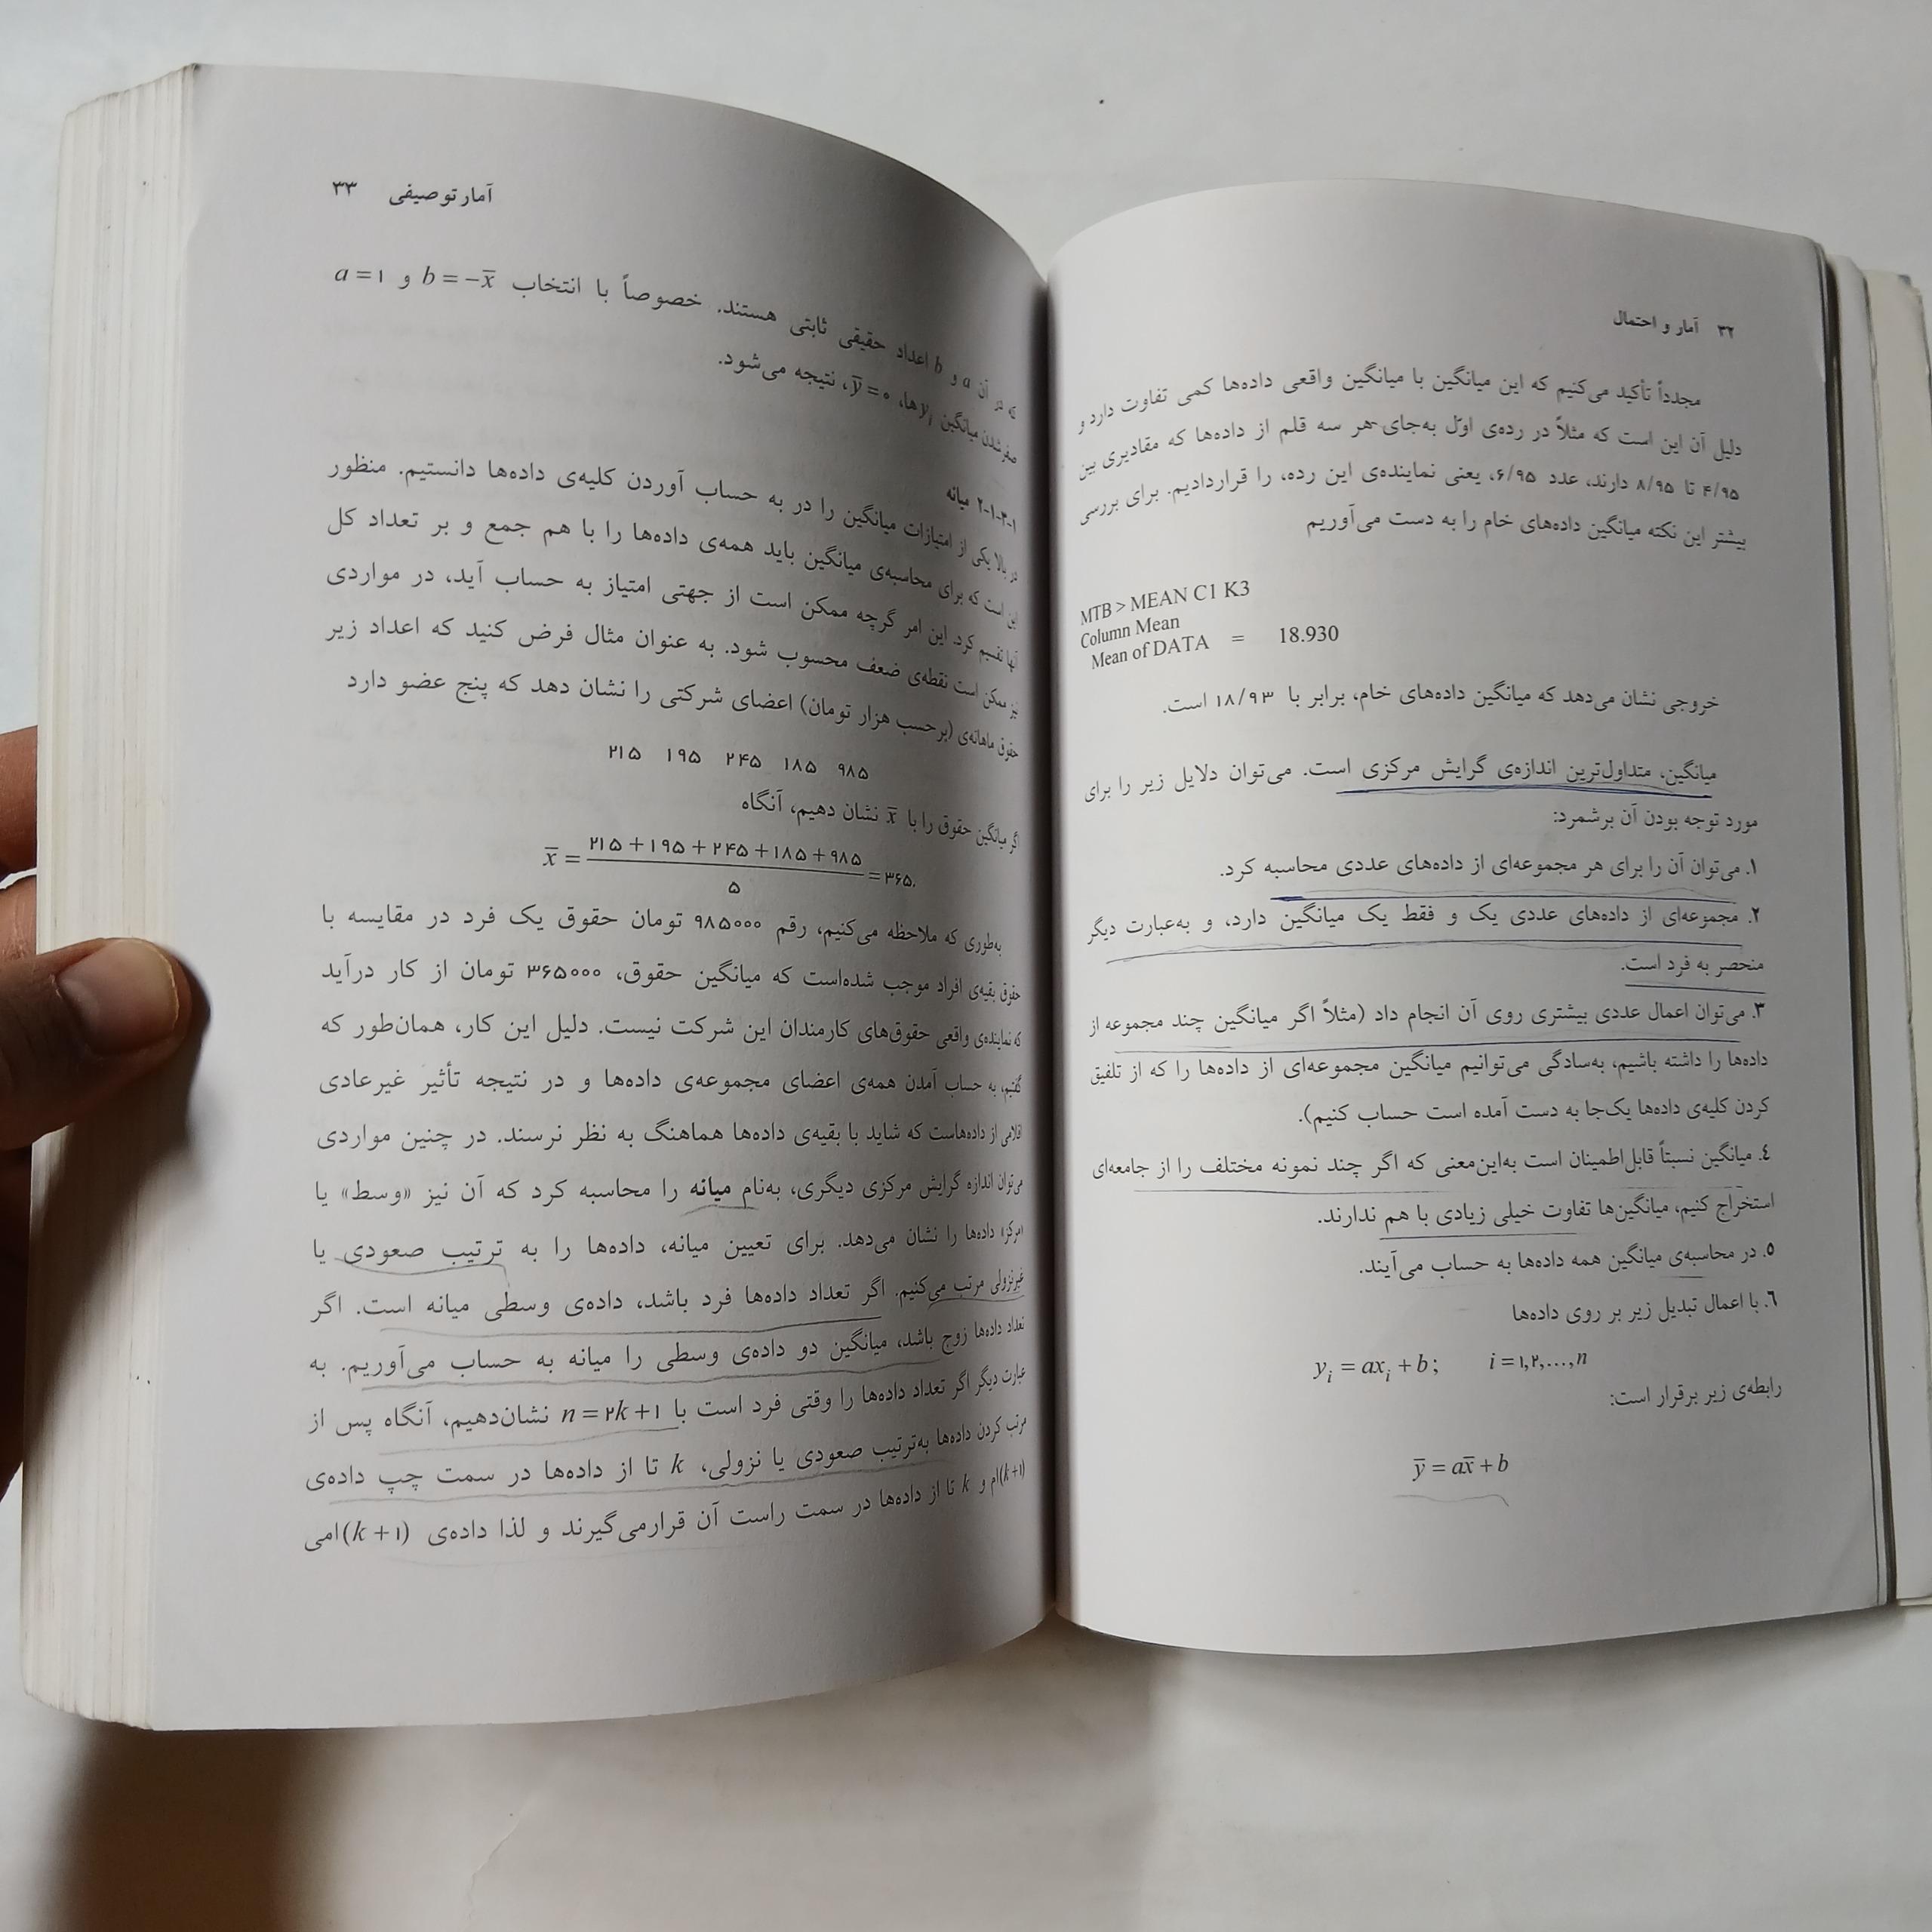 ۳۲ آمار و احتمال
مجدداً تأکید می‌کنیم که این میانگین با میانگین واقعی داده‌ها کمی تفاوت دارد و
دلیل آن این است که مثلاً در رده‌ی اوّل به‌جای هر سه قلم از داده‌ها که مقادیری بین
۴/۹۵ تا ۸/۹۵ دارند، عدد ۶/۹۵، یعنی نماینده‌ی این رده، را قراردادیم. برای بررسی
بیشتر این نکته میانگین داده‌های خام را به دست می‌آوریم
MTB > MEAN C1 K3
Column Mean
Mean of DATA = 18.930
خروجی نشان می‌دهد که میانگین داده‌های خام، برابر با ۱۸/۹۳ است.
میانگین، متداول‌ترین اندازه‌ی گرایش مرکزی است. می‌توان دلایل زیر را برای
مورد توجه بودن آن برشمرد:
۱. می‌توان آن را برای هر مجموعه‌ای از داده‌های عددی محاسبه کرد.
۲. مجموعه‌ای از داده‌های عددی یک و فقط یک میانگین دارد، و به‌عبارت دیگر
منحصر به فرد است.
۳. می‌توان اعمال عددی بیشتری روی آن انجام داد (مثلاً اگر میانگین چند مجموعه از
داده‌ها را داشته باشیم، به‌سادگی می‌توانیم میانگین مجموعه‌ای از داده‌ها را که از تلفیق
کردن کلیه‌ی داده‌ها یک‌جا به دست آمده است حساب کنیم).
۴. میانگین نسبتاً قابل‌اطمینان است به‌این‌معنی که اگر چند نمونه مختلف را از جامعه‌ای
استخراج کنیم، میانگین‌ها تفاوت خیلی زیادی با هم ندارند.
۵. در محاسبه‌ی میانگین همه داده‌ها به حساب می‌آیند.
۶. با اعمال تبدیل زیر بر روی داده‌ها
yᵢ = axᵢ + b ; i = ۱,۲,...,n
رابطه‌ی زیر برقرار است:
ȳ = ax̄ + b
آمار توصیفی ۳۳
که در آن a و b اعداد حقیقی ثابتی هستند. خصوصاً با انتخاب b = −x̄ و a = ۱
صفر شدن میانگین yᵢها، ȳ = ۰، نتیجه می‌شود.
۱-۳-۱-۲ میانه
در بالا یکی از امتیازات میانگین را در به حساب آوردن کلیه‌ی داده‌ها دانستیم. منظور
این است که برای محاسبه‌ی میانگین باید همه‌ی داده‌ها را با هم جمع و بر تعداد کل
آنها تقسیم کرد. این امر گرچه ممکن است از جهتی امتیاز به حساب آید، در مواردی
نیز ممکن است نقطه‌ی ضعف محسوب شود. به عنوان مثال فرض کنید که اعداد زیر
حقوق ماهانه‌ی (برحسب هزار تومان) اعضای شرکتی را نشان دهد که پنج عضو دارد
۲۱۵ ۱۹۵ ۲۴۵ ۱۸۵ ۹۸۵
اگر میانگین حقوق را با x̄ نشان دهیم، آنگاه
x̄ = (۲۱۵ + ۱۹۵ + ۲۴۵ + ۱۸۵ + ۹۸۵) / ۵ = ۳۶۵.
به‌طوری که ملاحظه می‌کنیم، رقم ۹۸۵۰۰۰ تومان حقوق یک فرد در مقایسه با
حقوق بقیه‌ی افراد موجب شده‌است که میانگین حقوق، ۳۶۵۰۰۰ تومان از کار درآید
که نماینده‌ی واقعی حقوق‌های کارمندان این شرکت نیست. دلیل این کار، همان‌طور که
گفتیم، به حساب آمدن همه‌ی اعضای مجموعه‌ی داده‌ها و در نتیجه تأثیر غیرعادی
اقلامی از داده‌هاست که شاید با بقیه‌ی داده‌ها هماهنگ به نظر نرسند. در چنین مواردی
می‌توان اندازه گرایش مرکزی دیگری، به‌نام میانه را محاسبه کرد که آن نیز «وسط» یا
«مرکز» داده‌ها را نشان می‌دهد. برای تعیین میانه، داده‌ها را به ترتیب صعودی یا
غیرنزولی مرتب می‌کنیم. اگر تعداد داده‌ها فرد باشد، داده‌ی وسطی میانه است. اگر
تعداد داده‌ها زوج باشد، میانگین دو داده‌ی وسطی را میانه به حساب می‌آوریم. به
عبارت دیگر اگر تعداد داده‌ها را وقتی فرد است با n = ۲k + ۱ نشان‌دهیم، آنگاه پس از
مرتب کردن داده‌ها به‌ترتیب صعودی یا نزولی، k تا از داده‌ها در سمت چپ داده‌ی
(k+۱)ام و k تا از داده‌ها در سمت راست آن قرارمی‌گیرند و لذا داده‌ی (k + ۱)امی